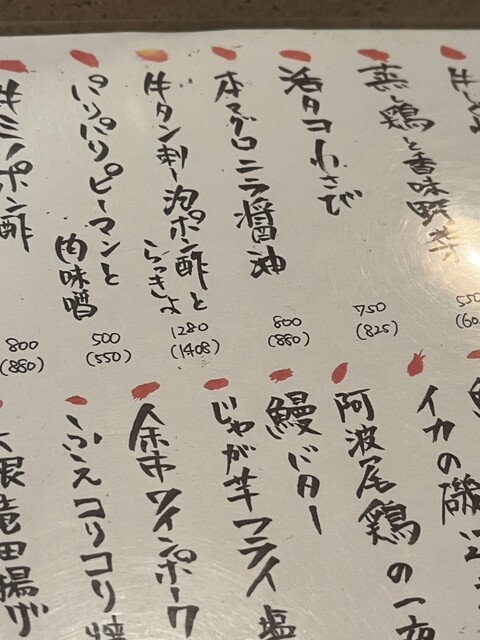 蒸し鶏と香味野菜
550
(60
活タコわさび
750
(825)
本マグロニラ醤油
800
(880)
牛タン刺し泡ポン酢と
らっきょ
1280
(1408)
パリパリピーマンと
肉味噌
500
(550)
牛ミノポン酢
800
(880)
イカの磯辺
阿波尾鶏の一夜
鰻バター
じゃが芋フライ 塩
余市ワインポーク
ふえコリコリ焼
大根竜田揚げ